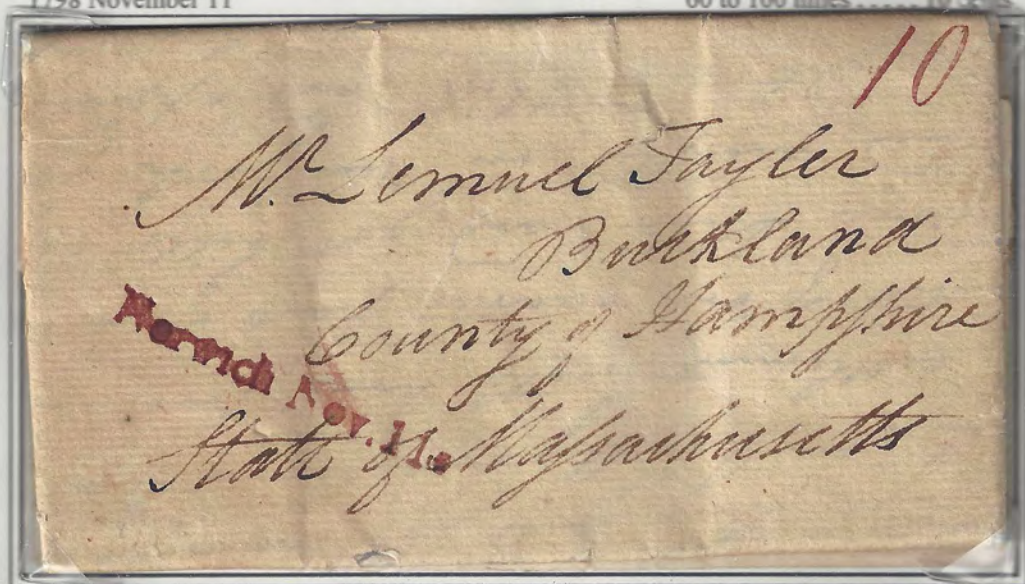 1798 November 11
60 to 100 miles.....10 cents
10
Mr. Lemuel Tayler
Buckland
County of Hampshire
State of Massachusetts
Norwich Nov. 11.